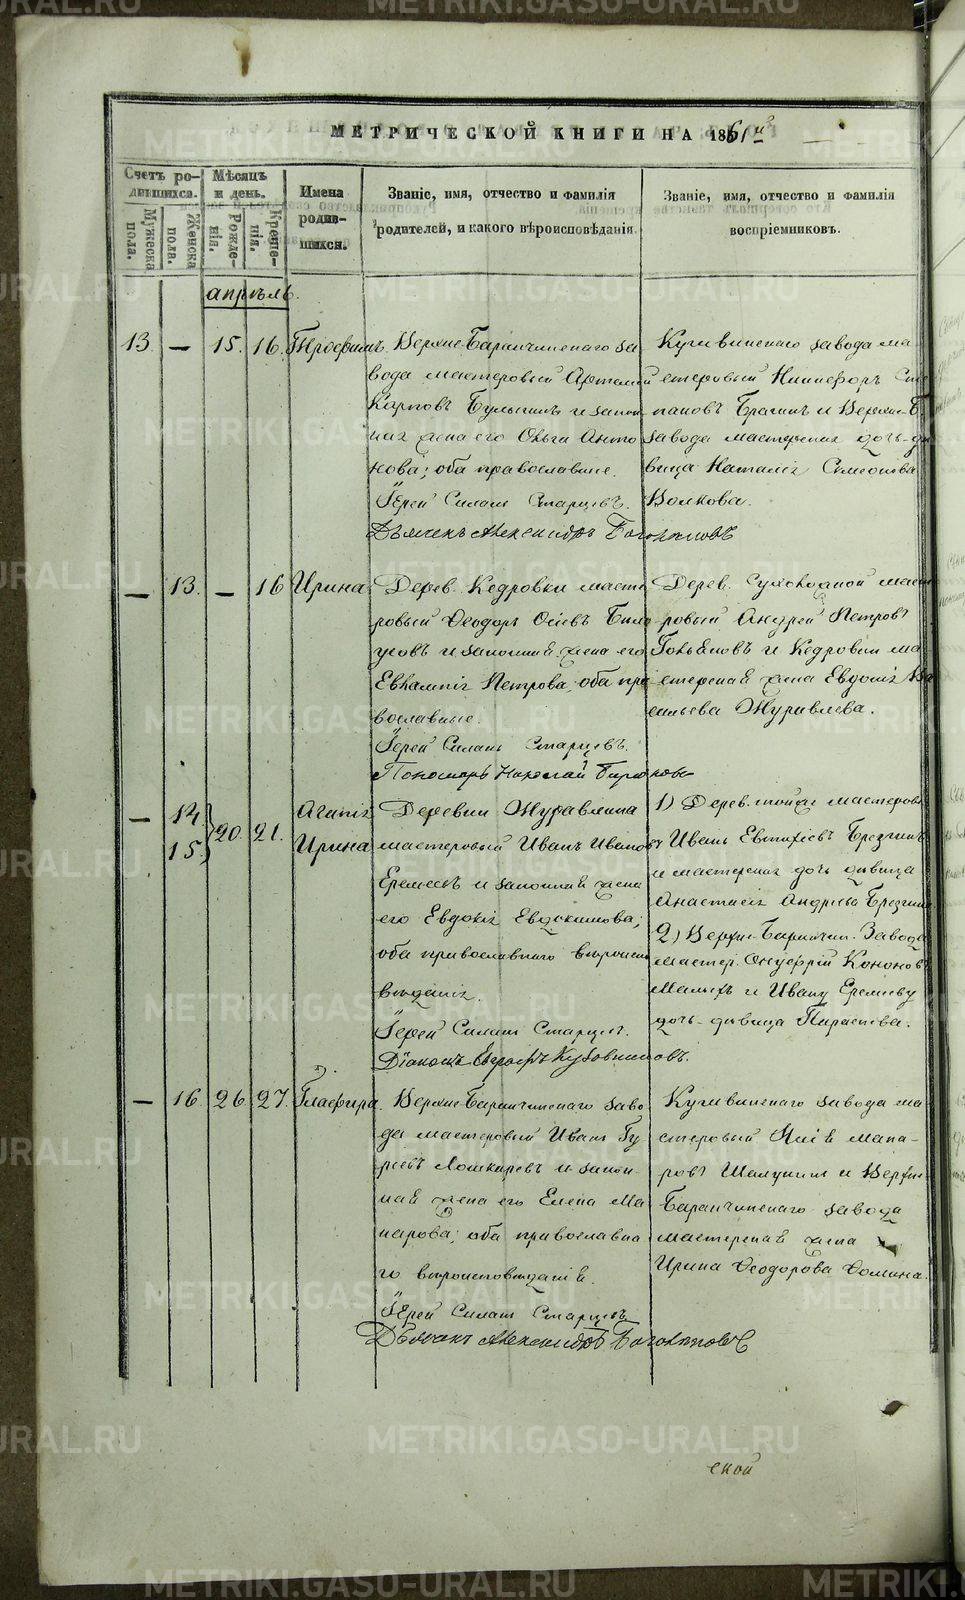 МЕТРИЧЕСКОЙ КНИГИ НА 1861й
Счетъ ро-
дившихся.
Мужеска
пола.
Женска
пола.
Мѣсяцъ
и день.
Рожде-
нія.
Креще-
нія.
Имена
родив-
шихся.
Званіе, имя, отчество и фамилія
родителей, и какого вѣроисповѣданія.
Званіе, имя, отчество и фамилія
воспріемниковъ.
апрѣль.
13. — 15. 16. Трофимъ.
Верхне-Баранчинскаго за
вода мастеровый Артемій
Карповъ Булыгинъ и закон
ная жена его Ольга Анто
нова; оба православные.
Іерей Силинъ Старцевъ.
Дьячекъ Александръ
Кушвинскаго завода ма
стеровый Никифоръ Сте
пановъ Брагинъ и Верхне-Б
завода мастерская дочь-дѣ
вица Наталія Симеонова
Волкова.
— 13. — 16 Ирина
Дерев. Кедровки масте
ровый Ѳеодоръ Осіевъ Бѣло
усовъ и законная жена его
Евлампія Петрова, оба пра
вославные.
Іерей Силинъ Старцевъ.
Пономарь Николай
Дерев. маст
ровый Андрей Петровъ
и Кедровки ма
стерская жена Евдокія Ва
сильева Журавлева.
— 14. 15. 20. 21.
Агапія
Ирина
Деревни Журавлика
мастеровый Иванъ Иванов
и законная жена
его Евдокія Евдокимова;
оба православнаго вѣроиспо
вѣданія.
Іерей Силинъ Старцевъ.
Діаконъ
1) Дерев. тойже мастеров
Иванъ Евтихіевъ Брезгинъ
и мастерская дочь дѣвица
Анастасія Андреева Брезгина
2) Верхне-Баранчин. Завода
мастер. Онуфрій Кононовъ
и Ивану Еремѣеву
дочь-дѣвица Параскева.
— 16. 26. 27. Глафира.
Верхне-Баранчинскаго заво
да мастеровый Иванъ Гу
рьевъ Лошкаревъ и закон-
ная жена его Елена Ма
карова; оба православна
го вѣроисповѣданія.
Іерей Силинъ Старцевъ
Дьячекъ Александръ
Кушвинскаго завода ма-
стеровый Мака-
ровъ и Верхне-
Баранчинскаго завода
мастерская жена
Ирина Ѳеодорова Ѳомина.
ской
METRIKI.GASO-URAL.RU